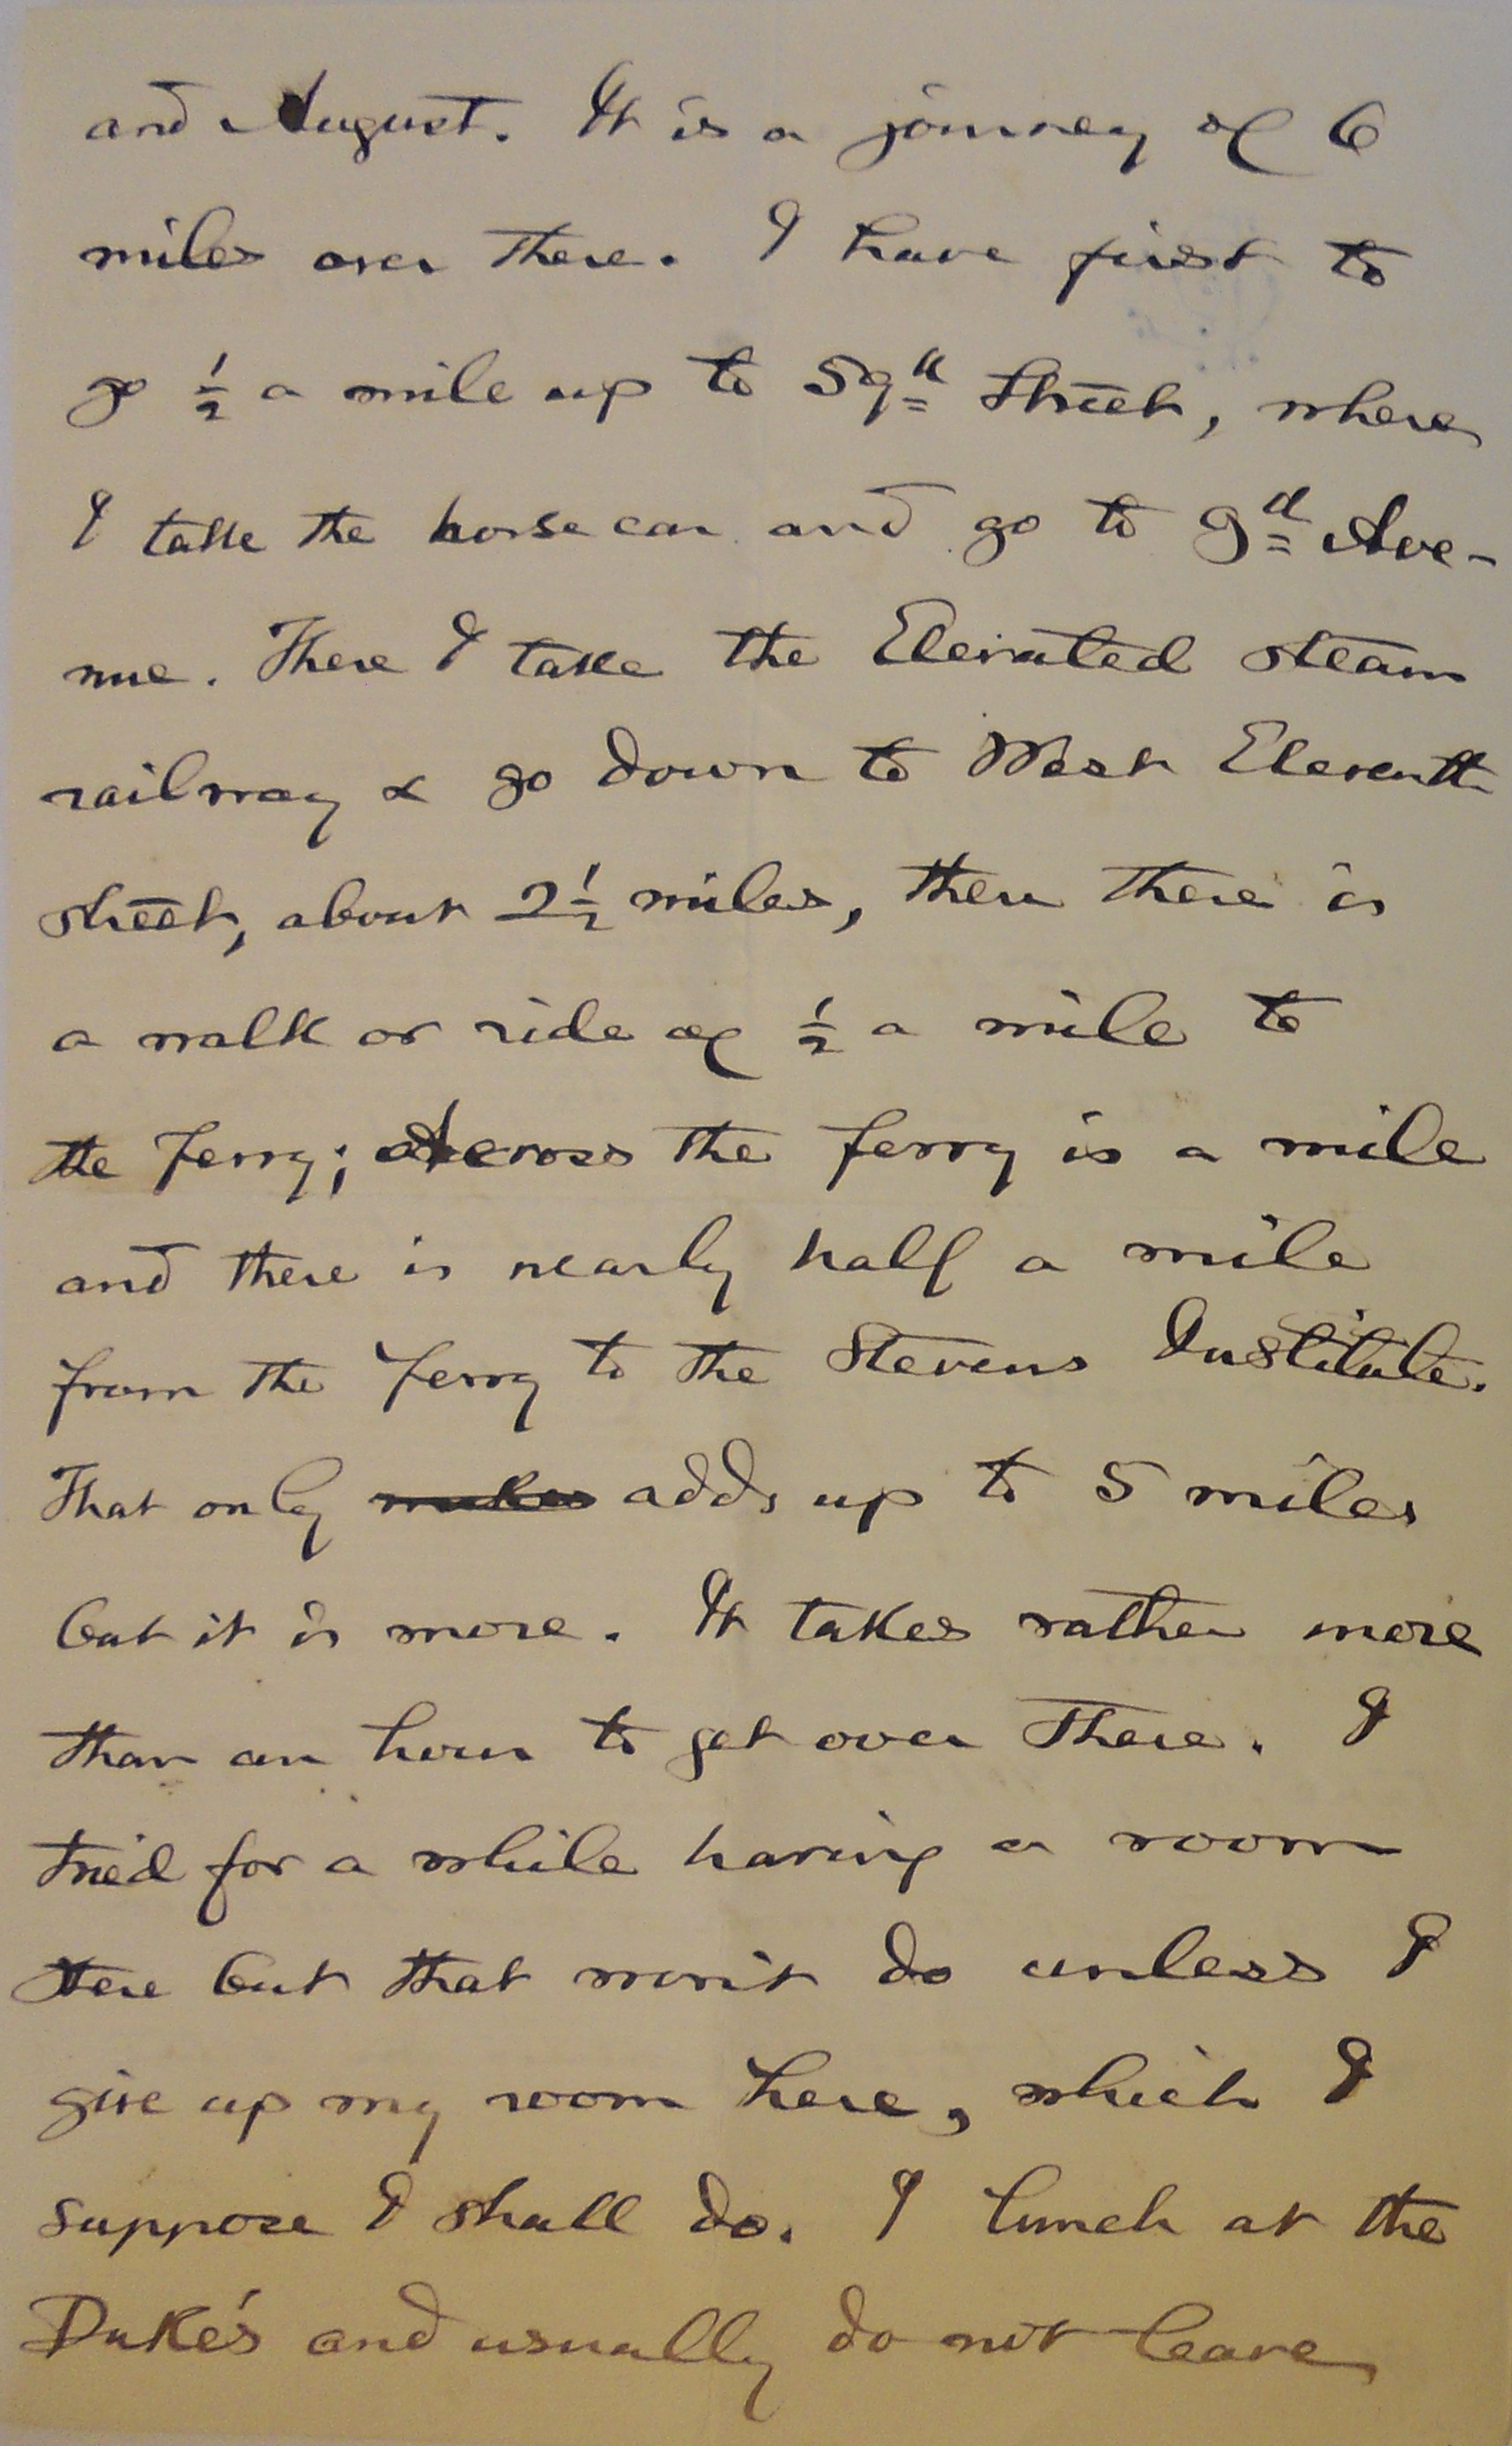 and August. It is a journey of 6
miles over there. I have first to
go ½ a mile up to 59th Street, where
I take the horse car and go to 9d Ave-
nue. There I take the Elevated steam
railway & go down to West Eleventh
street, about 2½ miles, then there is
a walk or ride of ½ a mile to
the Ferry; Across the ferry is a mile
and there is nearly half a mile
from the Ferry to the Stevens Institute.
That only makes adds up to 5 miles
but it is more. It takes rather more
than an hour to get over there. I
tried for a while having a room
there but that won't do unless I
give up my room here, which I
suppose I shall do. I lunch at the
Duke's and usually do not leave